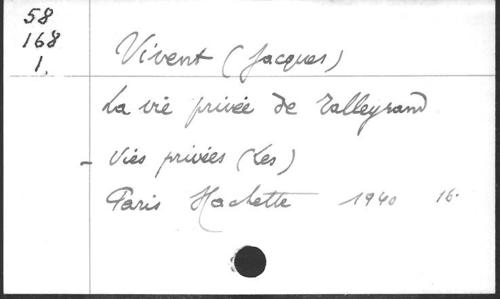 58
168
1.
Vivent (Jacques)
La vie privée de Talleyrand
- Viés privées (Les)
Paris Hachette 1940 16.